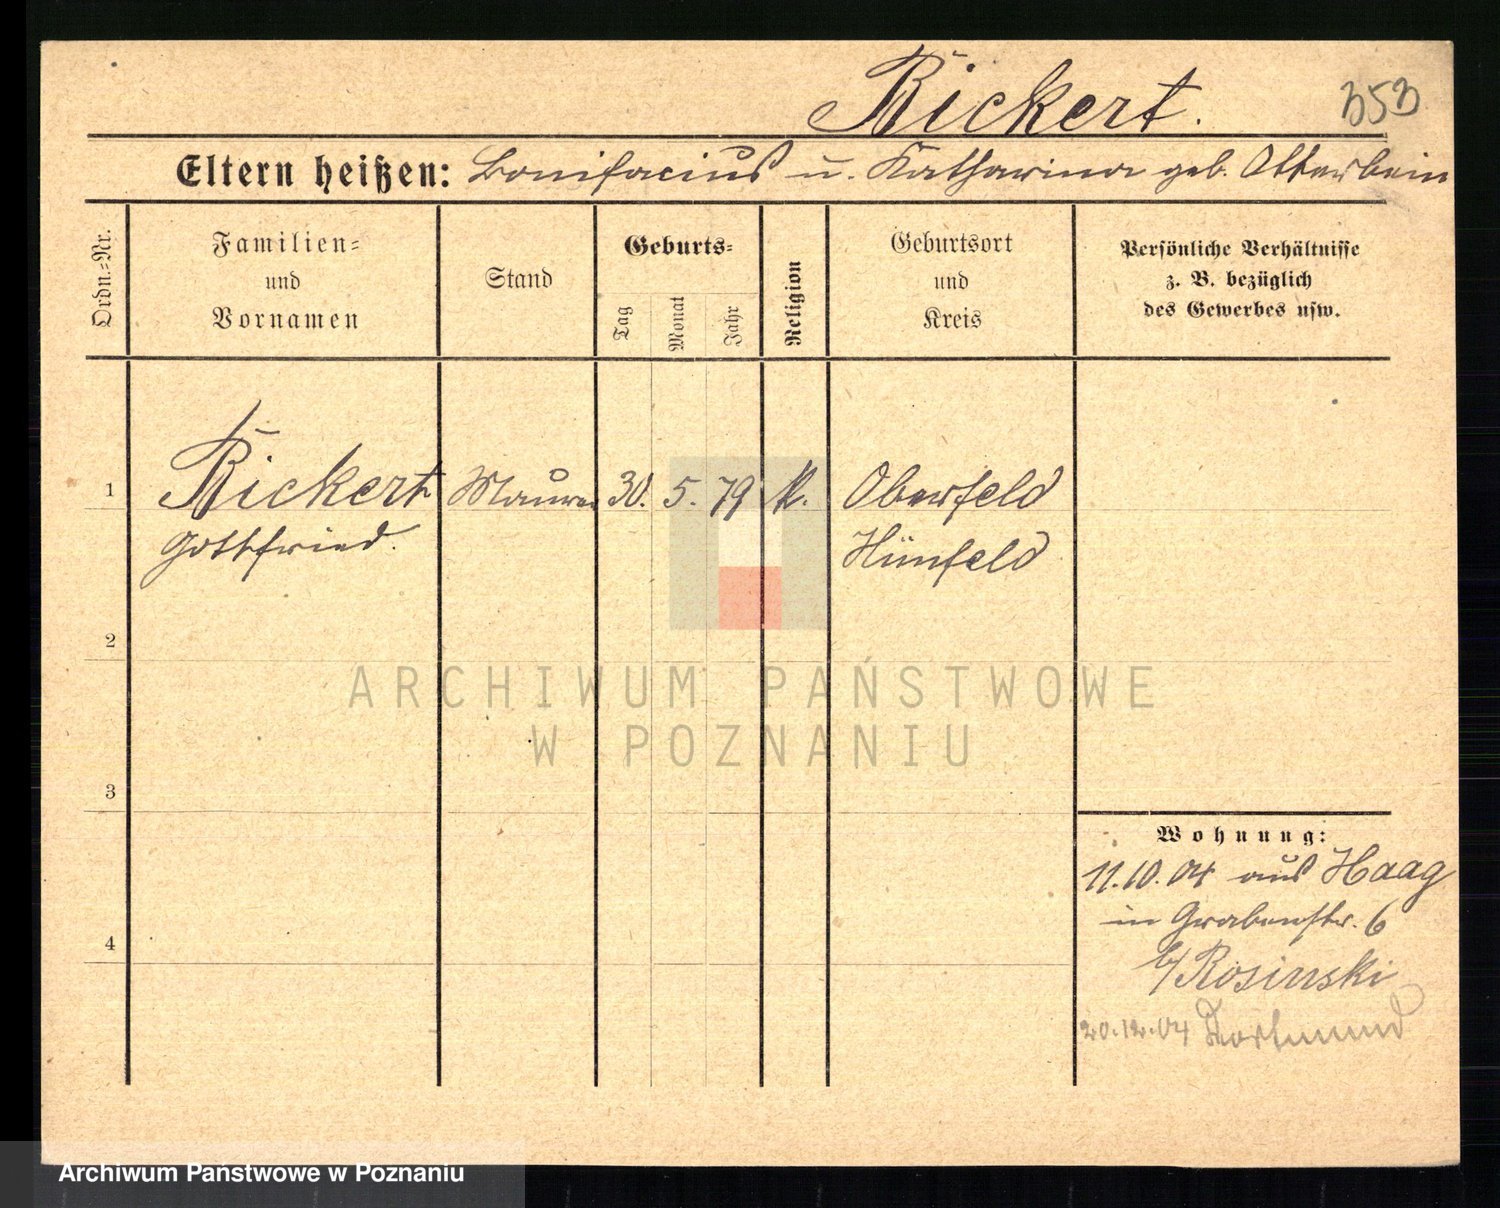 Rickert.
353
Eltern heißen: Bonifacius u. Katharina geb. Otterbein
Ordn.-Nr.
Familien-
und
Vornamen
Stand
Geburts-
Tag
Monat
Jahr
Religion
Geburtsort
und
Kreis
Persönliche Verhältnisse
z. B. bezüglich
des Gewerbes usw.
1 Rickert Maurer 30. 5. 79 k. Oberfeld
Gottfried. Hünfeld
2
ARCHIWUM PAŃSTWOWE
W POZNANIU
3
Wohnung:
11.10.04 aus Haag
in Grabenstr. 6
b/Rosinski
4
20.12.04 Dortmund
Archiwum Państwowe w Poznaniu